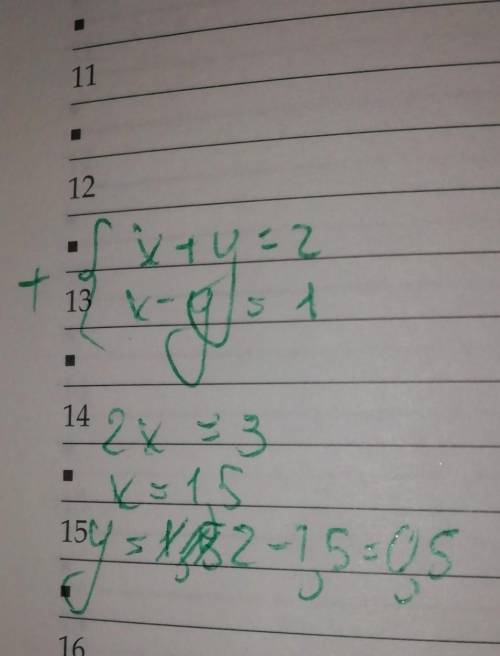 11
12
{ x + y = 2
+ 13 x - y = 1
14
2x = 3
x = 1,5
15 y = 2 - 1,5 = 0,5
16